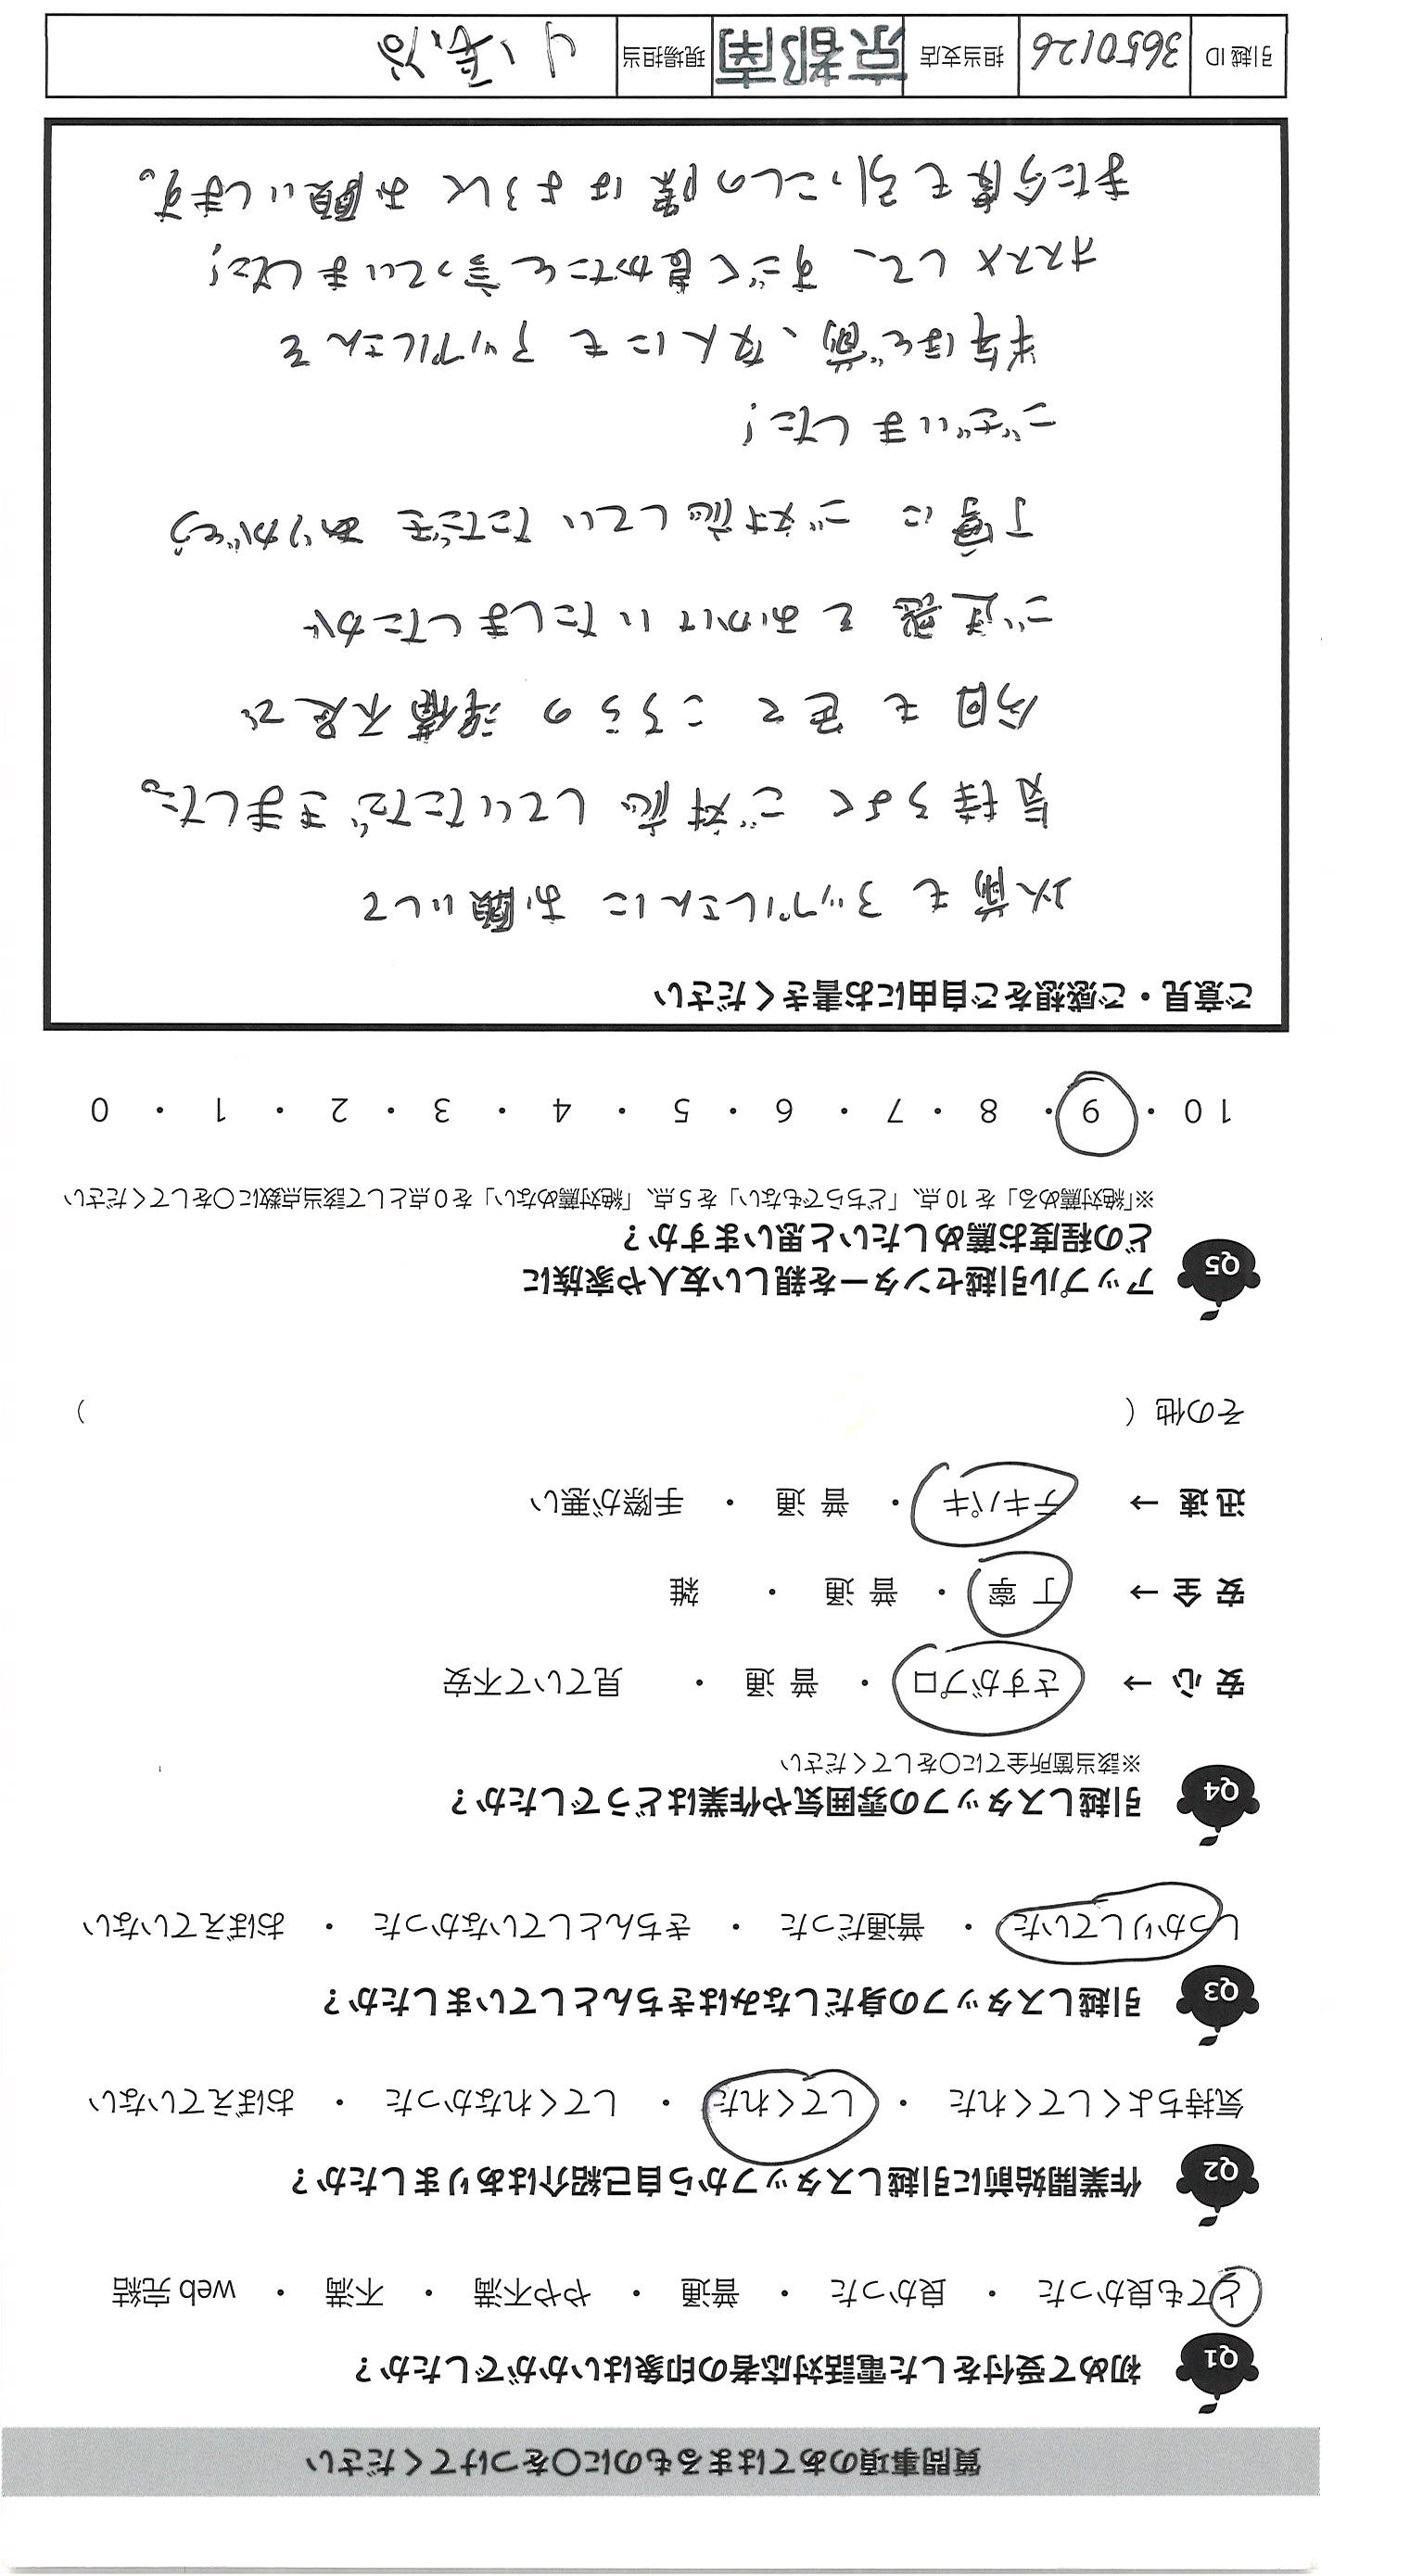 質問事項のあてはまるものに〇をつけてください
Q1 初めて受付をした電話対応者の印象はいかがでしたか？
とても良かった ・ 良かった ・ 普通 ・ やや不満 ・ 不満 ・ web 完結
Q2 作業開始前に引越しスタッフから自己紹介はありましたか？
気持ちよくしてくれた ・ してくれた ・ してくれなかった ・ おぼえていない
Q3 引越しスタッフの身だしなみはきちんとしていましたか？
しっかりしていた ・ 普通だった ・ きちんとしていなかった ・ おぼえていない
Q4 引越しスタッフの雰囲気や作業はどうでしたか？
※該当箇所全てに〇をしてください
安 心 → さすがプロ ・ 普 通 ・ 見ていて不安
安 全 → 丁 寧 ・ 普 通 ・ 雑
迅 速 → テキパキ ・ 普 通 ・ 手際が悪い
その他（ ）
Q5 アップル引越センターを親しい友人や家族に
どの程度お薦めしたいと思いますか？
※「絶対薦める」を 10 点、「どちらでもない」を 5 点、「絶対薦めない」を 0 点として該当点数に〇をしてください
10 ・ 9 ・ 8 ・ 7 ・ 6 ・ 5 ・ 4 ・ 3 ・ 2 ・ 1 ・ 0
ご意見・ご感想をご自由にお書きください
以前もアップルさんにお願いして
気持ちよくご対応していただきました。
今回も こちらの準備不足で
ご迷惑をおかけいたしましたが
丁寧にご対応していただき ありがとう
ございました！
半年ほど前、友人にもアップルさんを
オススメして、すごく良かたと言っていました！
また今度も引っこしの際はよろしくお願いします。
引越 ID 3650126 担当支店 京都南 現場担当